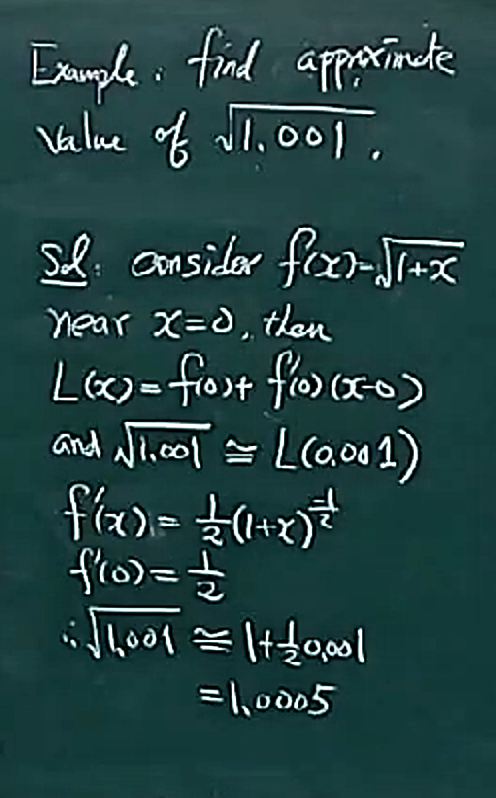 Example: find approximate
value of √1.001.
Sol: consider f(x)=√1+x
near x=0, then
L(x)=f(0)+f'(0)(x-0)
and √1.001 ≅ L(0.001)
f'(x)=1/2(1+x)^-1/2
f'(0)=1/2
∴√1.001 ≅ 1+1/2 0.001
=1.0005